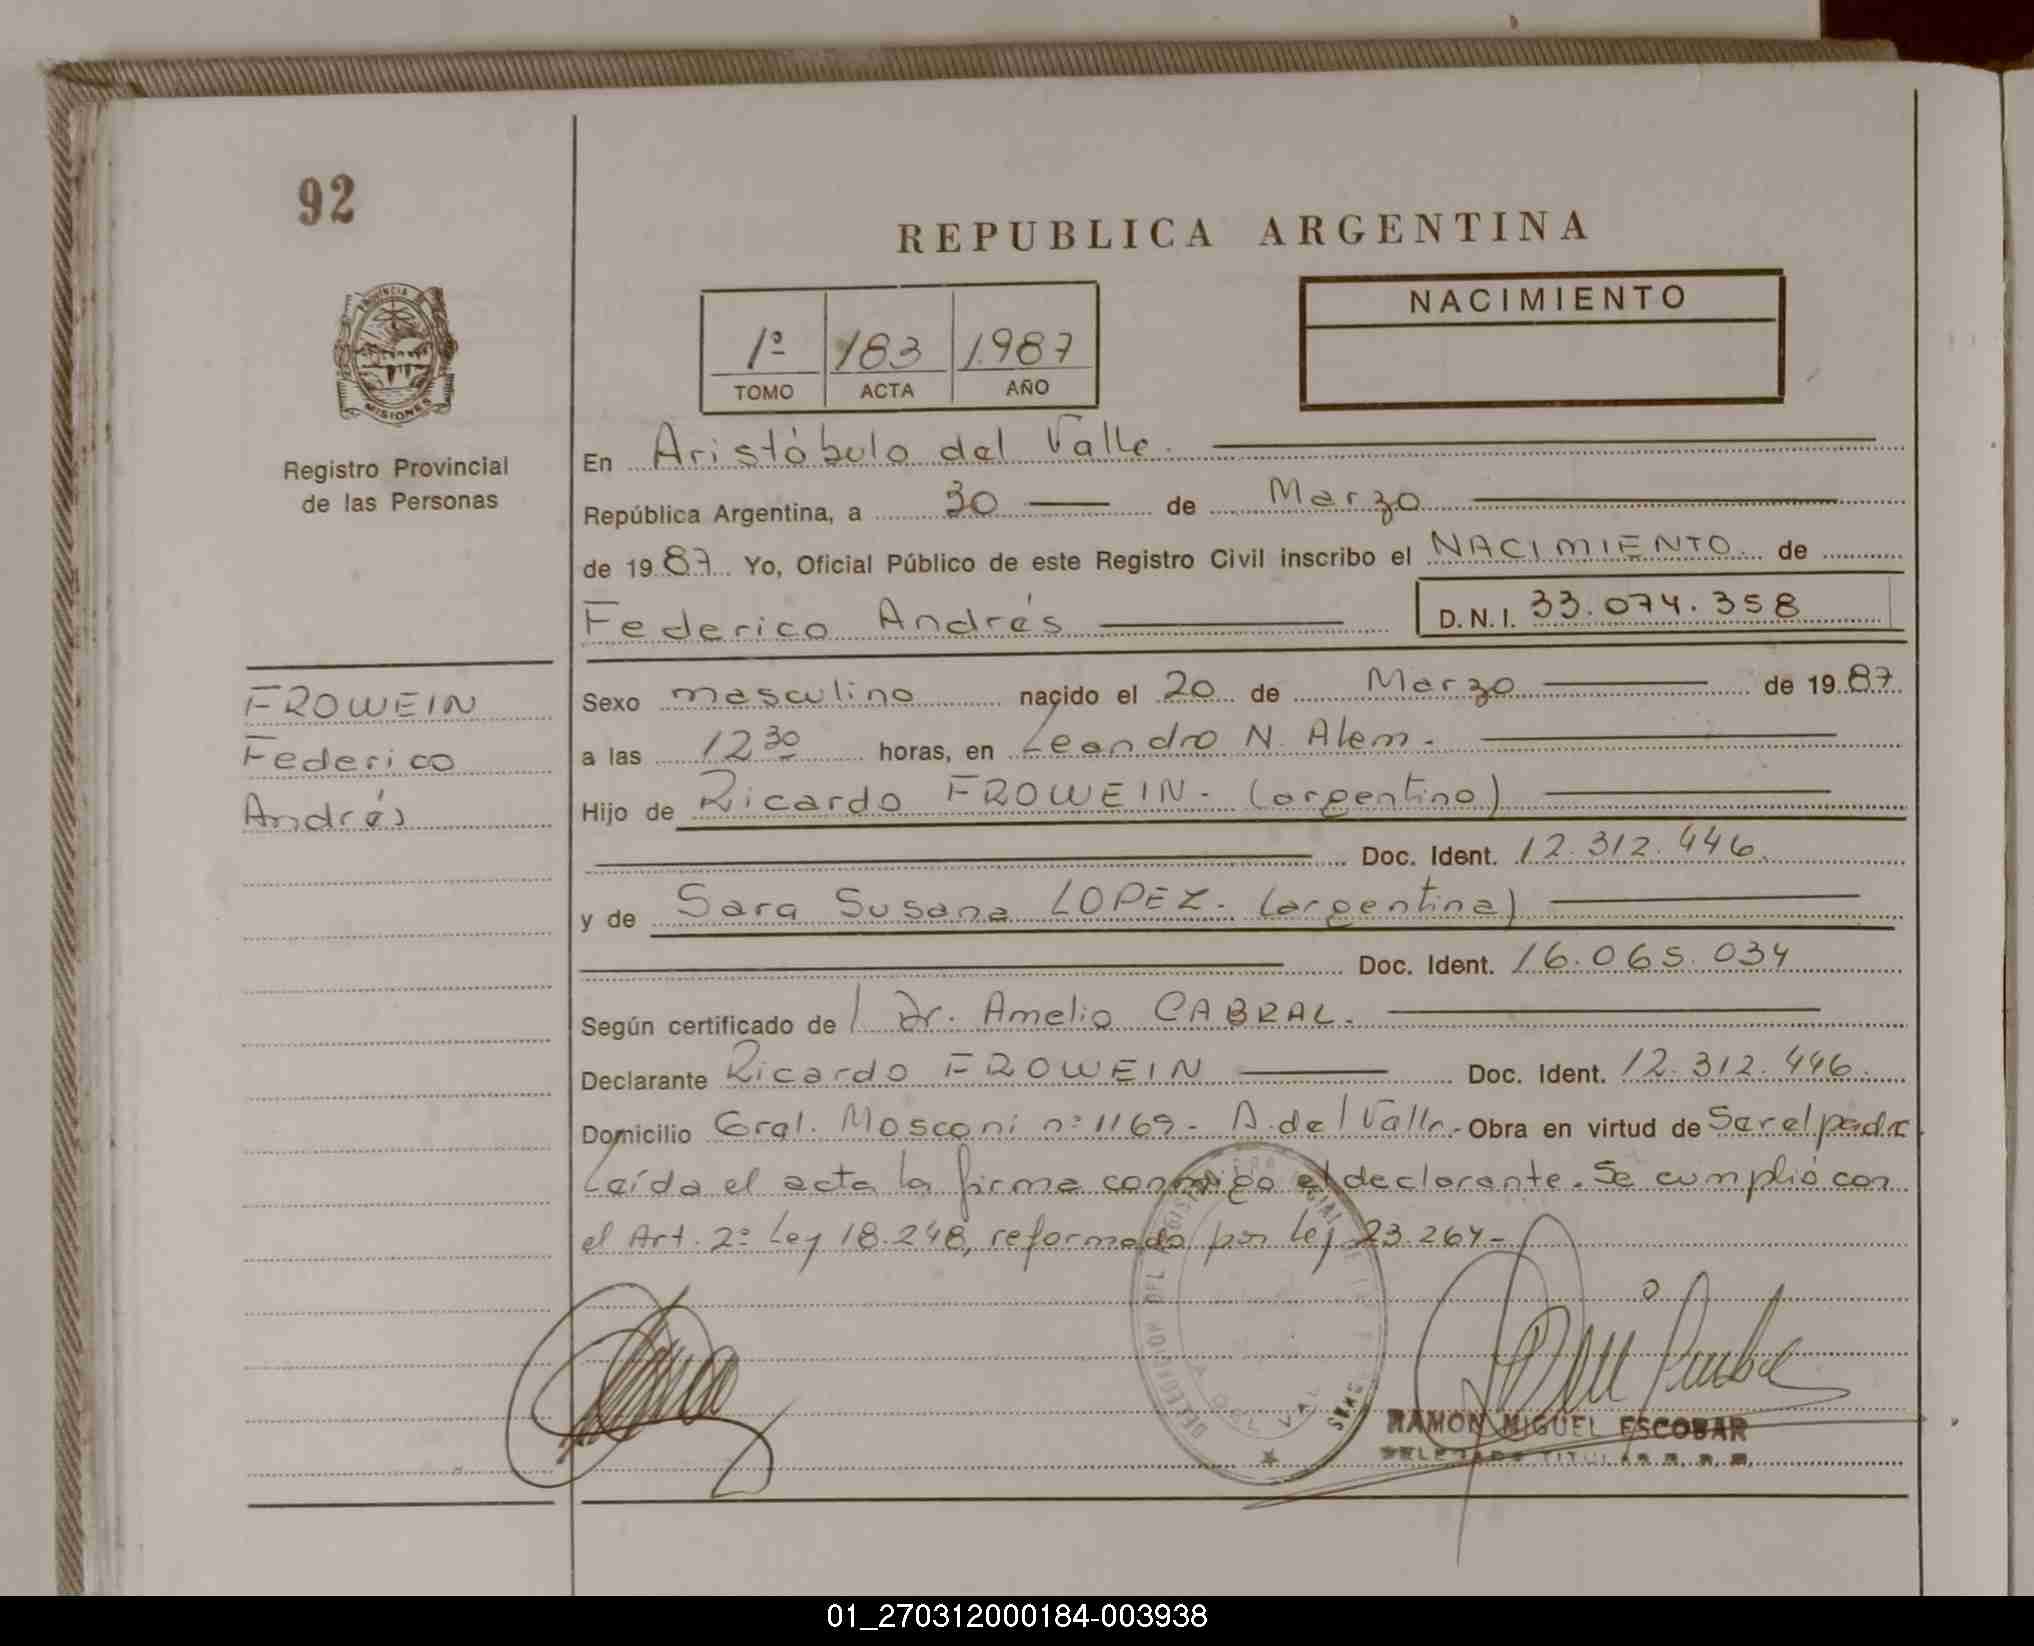 92
REPUBLICA ARGENTINA
PROVINCIA
MISIONES
Registro Provincial
de las Personas
1º 183 1987
TOMO ACTA AÑO
NACIMIENTO
En Aristóbulo del Valle.
República Argentina, a 30 de Marzo
de 1987 Yo, Oficial Público de este Registro Civil inscribo el NACIMIENTO de
Federico Andrés D.N.I. 33.074.358
FROWEIN
Federico
Andrés
Sexo masculino nacido el 20 de Marzo de 1987
a las 12 30 horas, en Leandro N. Alem.
Hijo de Ricardo FROWEIN. (argentino)
Doc. Ident. 12.312.446.
y de Sara Susana LOPEZ. (argentina)
Doc. Ident. 16.065.034
Según certificado de Dr. Amelio CABRAL.
Declarante Ricardo FROWEIN Doc. Ident. 12.312.446.
Domicilio Gral. Mosconi nº 1169- A. del Valle.- Obra en virtud de Ser el padre.
Leída el acta la firma conmigo el declarante. Se cumplió con
el Art. 2º Ley 18.248, reformado por Ley 23.264-
RAMON MIGUEL ESCOBAR
01_270312000184-003938